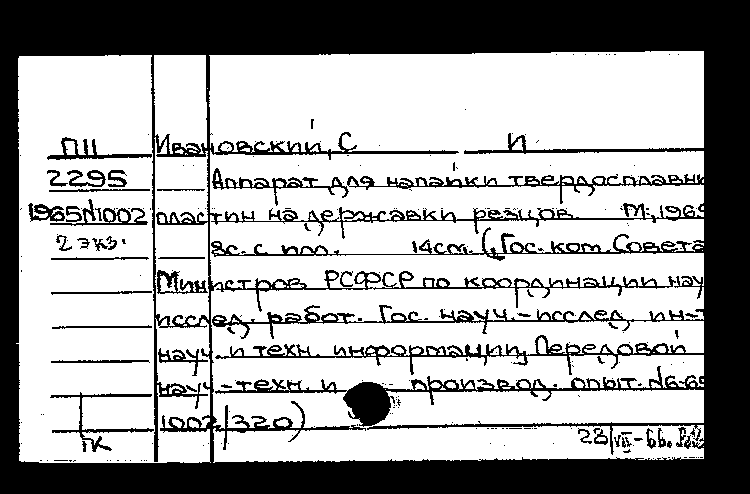 ПII Ивановский, С И
2295 Аппарат для напайки твердосплавн
1965№1002 пластин на державки резцов. М., 196
2 экз. 8с. с илл. 14см. (Гос. ком. Совета
Министров РСФСР по координации нау
исслед. работ. Гос. науч.-исслед. ин-т
науч. и техн. информации, Передовой
науч.-техн. и производ. опыт. №6-65
1002/320)
ГК 28/VII-66.